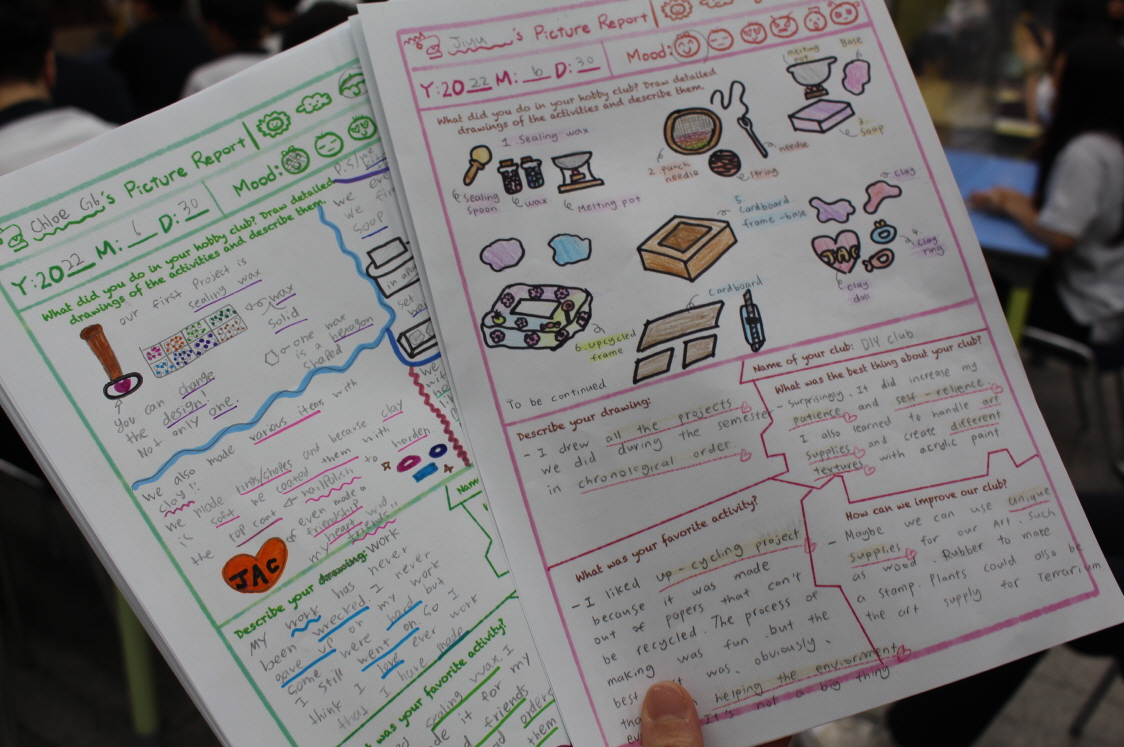 Chloe Gib's Picture Report
Mood:
Y:2022 M: 6 D: 30
What did you do in your hobby club? Draw detailed
drawings of the activities and describe them.
our first Project is
sealing wax
wax
solid
one wax
is a hexagon
shaped
You can change
the design!
Not only one.
We also made various items with
clay!!
clay
We made rings/shapes and because
it's soft we coated them with
the top coat nailpolish to harden
I even made a
friendship
heart with
my friends!!
JAC
Describe your drawing:
My work has never
been wrecked I never
gave up on my work
some were hard but
I still went on. So I
think I love ever work
that I have made
What was your favorite activity?
sealing wax. I
made it for my
friends
orders
them
P.S/
we
we fir
soap
in
set
We
with
Jiyu's Picture Report
Mood:
Y:2022 M: 6 D: 30
What did you do in your hobby club? Draw detailed
drawings of the activities and describe them.
1. Sealing wax
Sealing
Spoon
wax
Melting pot
2. punch
needle
needle
String
melting
pot
Base
3.
Soap
clay
4.
clay
ring
JAC
clay
doll
5.
Cardboard
frame - base
Cardboard
6. Upcycled
frame
To be continued
Describe your drawing:
- I drew all the projects
we did during the semester
in chronological order
Name of your club: DIY club
What was the best thing about your club?
- Surprisingly. It did increase my
patience and self - relience.
I also learned to handle art
supplies and create different
textures with acrylic paint.
What was your favorite activity?
- I liked up - cycling project
because it was made
out of papers that can't
be recycled. The process of
making was fun but the
best was, obviously,
helping the enviorment
It's not a big thing
How can we improve our club?
- Maybe we can use unique
supplies for our Art. Such
as wood. Rubber to make
a stamp. Plants could also be
the art supply for Terrarium